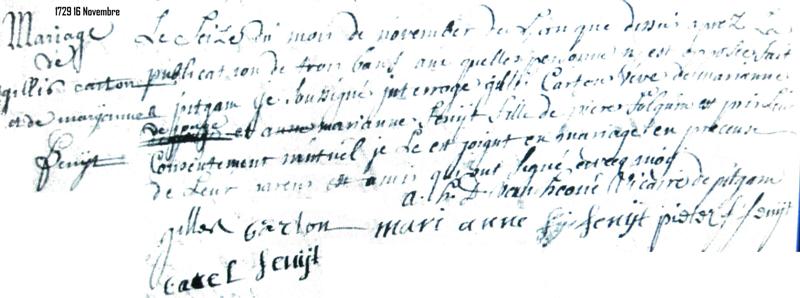 1729 16 Novembre
Mariage
de
gillis carton
et de marijanne
fenijt
Le Seize du mois de november de L'an que dessus aprez La
publication de trois bans aux quelles personne n'est
a pitgam je soussigné interroge gilli Carton Veve de marianne
et marianne fenijt fille de
Consentement mutuel je Le est joignt en mariage en presence
de Leur parens est amis qui ont signé avecq moij
Vicaire de pitgam
gilles carton mari anne fenijt pieter fenijt
carel fenijt